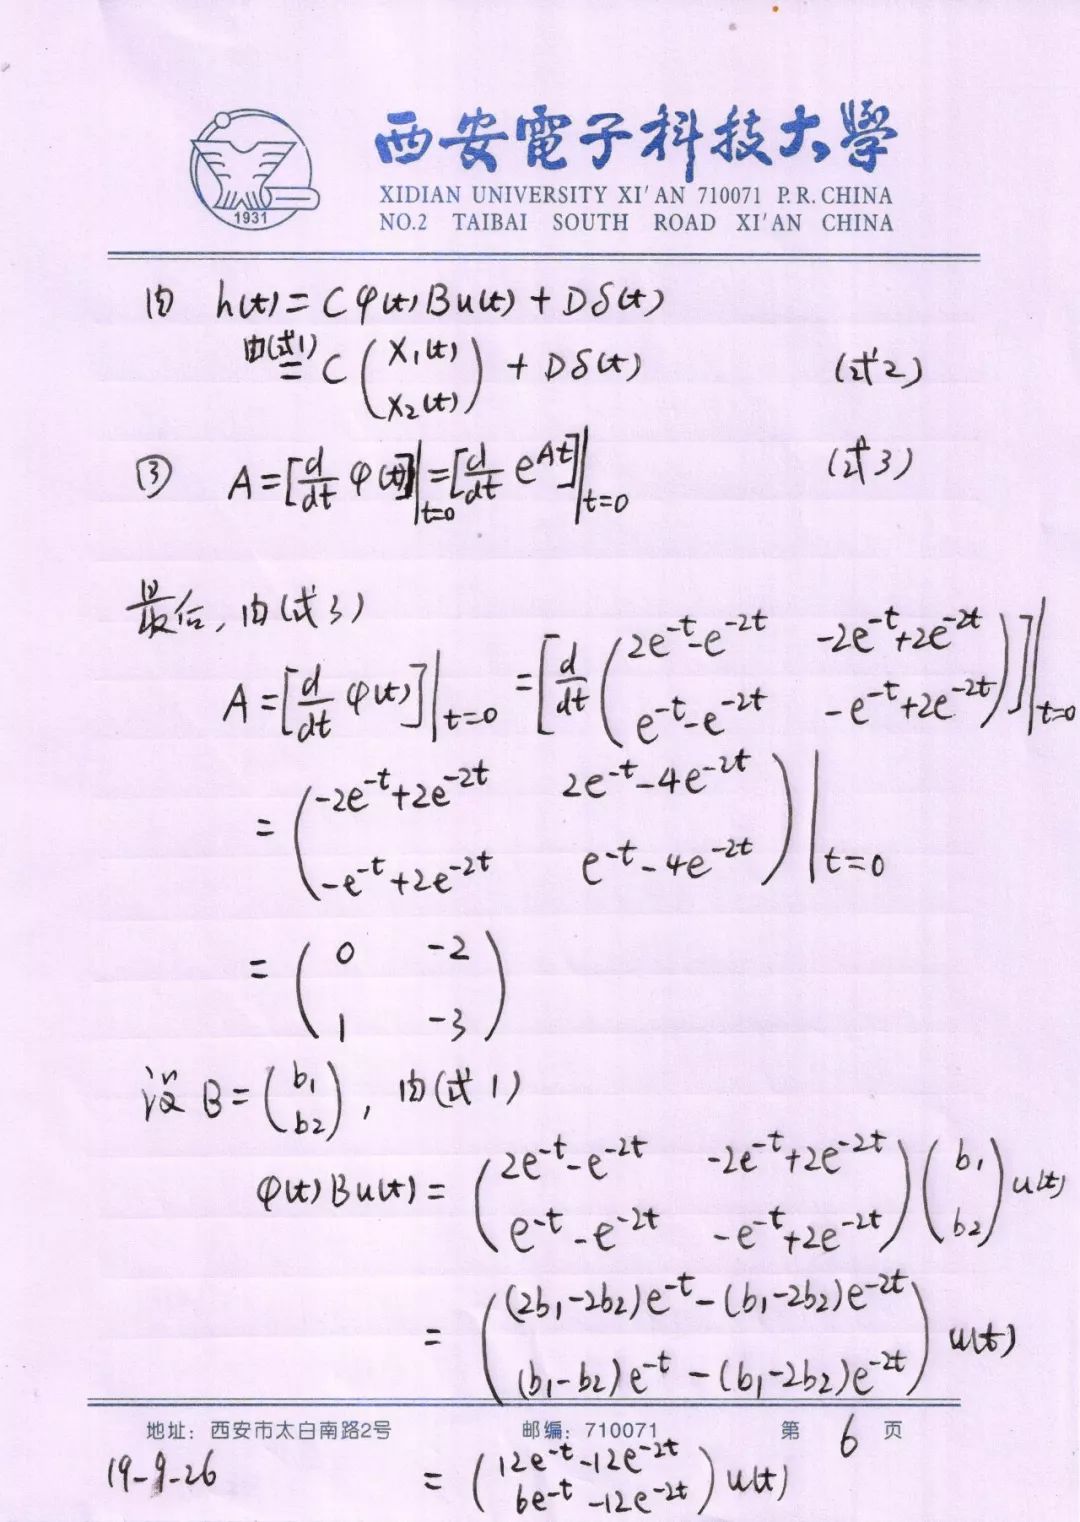 西安電子科技大學
XIDIAN UNIVERSITY XI'AN 710071 P.R.CHINA
NO.2 TAIBAI SOUTH ROAD XI'AN CHINA
1931
由 h(t)=Cφ(t)Bu(t)+Dδ(t)
由(式1)
= C (x₁(t) x₂(t)) + Dδ(t) (式2)
③ A=[d/dt φ(t)]|t=0=[d/dt e^{At}]|t=0 (式3)
最后,由(式3)
A=[d/dt φ(t)]|t=0 =[d/dt (2e^{-t}-e^{-2t} -2e^{-t}+2e^{-2t}
e^{-t}-e^{-2t} -e^{-t}+2e^{-2t})]|t=0
= (-2e^{-t}+2e^{-2t} 2e^{-t}-4e^{-2t}
-e^{-t}+2e^{-2t} e^{-t}-4e^{-2t})|t=0
= (0 -2
1 -3)
设 B=(b₁ b₂), 由(式1)
φ(t)Bu(t)= (2e^{-t}-e^{-2t} -2e^{-t}+2e^{-2t}
e^{-t}-e^{-2t} -e^{-t}+2e^{-2t}) (b₁ b₂) u(t)
= ((2b₁-2b₂)e^{-t}-(b₁-2b₂)e^{-2t}
(b₁-b₂)e^{-t}-(b₁-2b₂)e^{-2t}) u(t)
地址：西安市太白南路2号 邮编：710071 第 6 页
19-9-26
= (12e^{-t}-12e^{-2t}
6e^{-t}-12e^{-2t}) u(t)